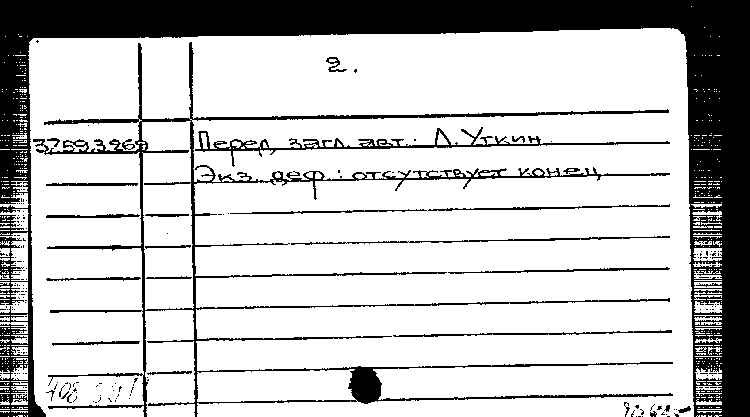 2.
37.59.3.269 Перед загл. авт.: Л. Уткин
Экз. деф.: отсутствует конец